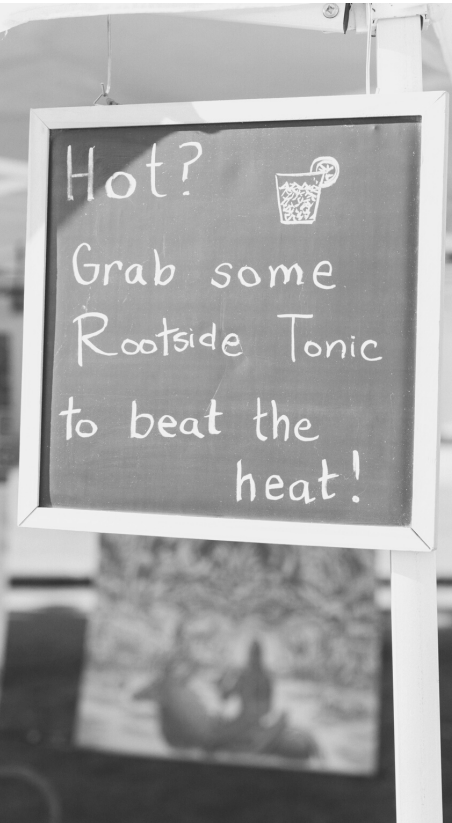 Hot?
Grab some
Rootside Tonic
to beat the
heat!